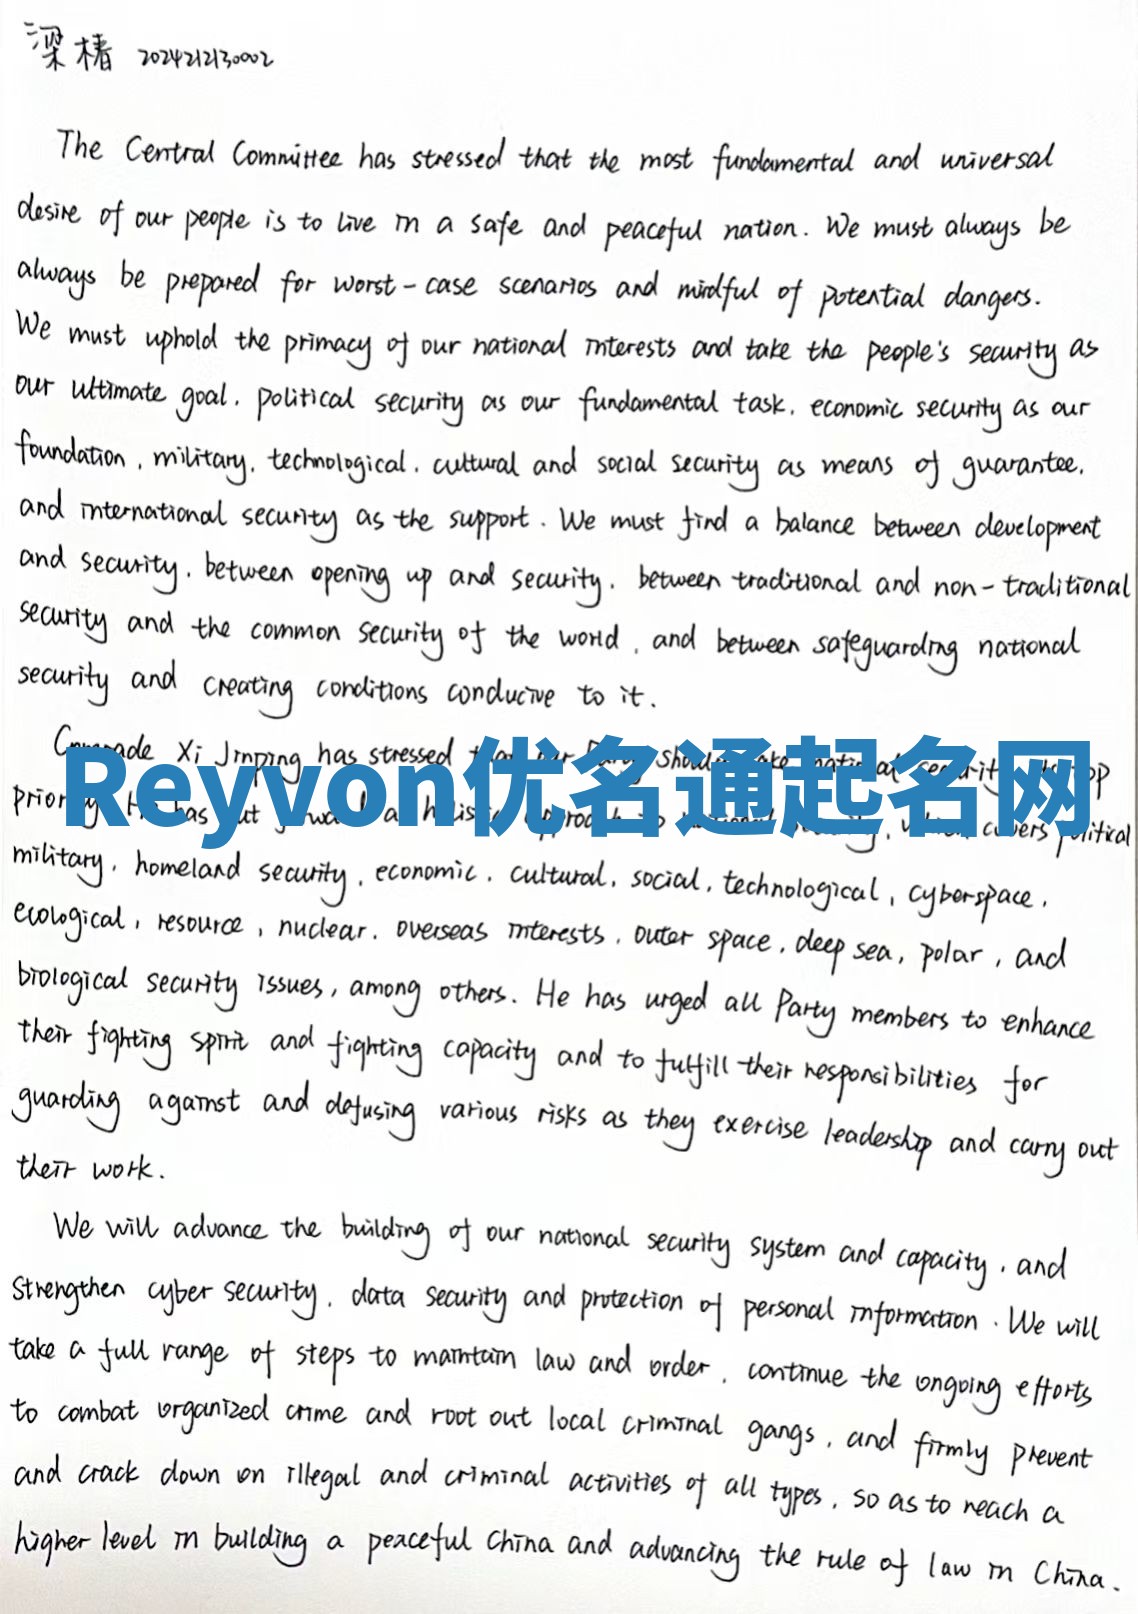 梁椿 2024212130002
The Central Committee has stressed that the most fundamental and universal
desire of our people is to live in a safe and peaceful nation. We must always be
always be prepared for worst-case scenarios and mindful of potential dangers.
We must uphold the primacy of our national interests and take the people's security as
our ultimate goal, political security as our fundamental task, economic security as our
foundation, military, technological, cultural and social security as means of guarantee,
and international security as the support. We must find a balance between development
and security, between opening up and security, between traditional and non-traditional
security and the common security of the world, and between safeguarding national
security and creating conditions conducive to it.
Comrade Xi Jinping has stressed should national security top
Reyvon优名通起名网
priority. He has put a holistic approach security, which covers political
military, homeland security, economic, cultural, social, technological, cyberspace,
ecological, resource, nuclear, overseas interests, outer space, deep sea, polar, and
biological security issues, among others. He has urged all Party members to enhance
their fighting spirit and fighting capacity and to fulfill their responsibilities for
guarding against and defusing various risks as they exercise leadership and carry out
their work.
We will advance the building of our national security system and capacity, and
strengthen cyber security, data security and protection of personal information. We will
take a full range of steps to maintain law and order, continue the ongoing efforts
to combat organized crime and root out local criminal gangs, and firmly prevent
and crack down on illegal and criminal activities of all types, so as to reach a
higher level in building a peaceful China and advancing the rule of law in China.